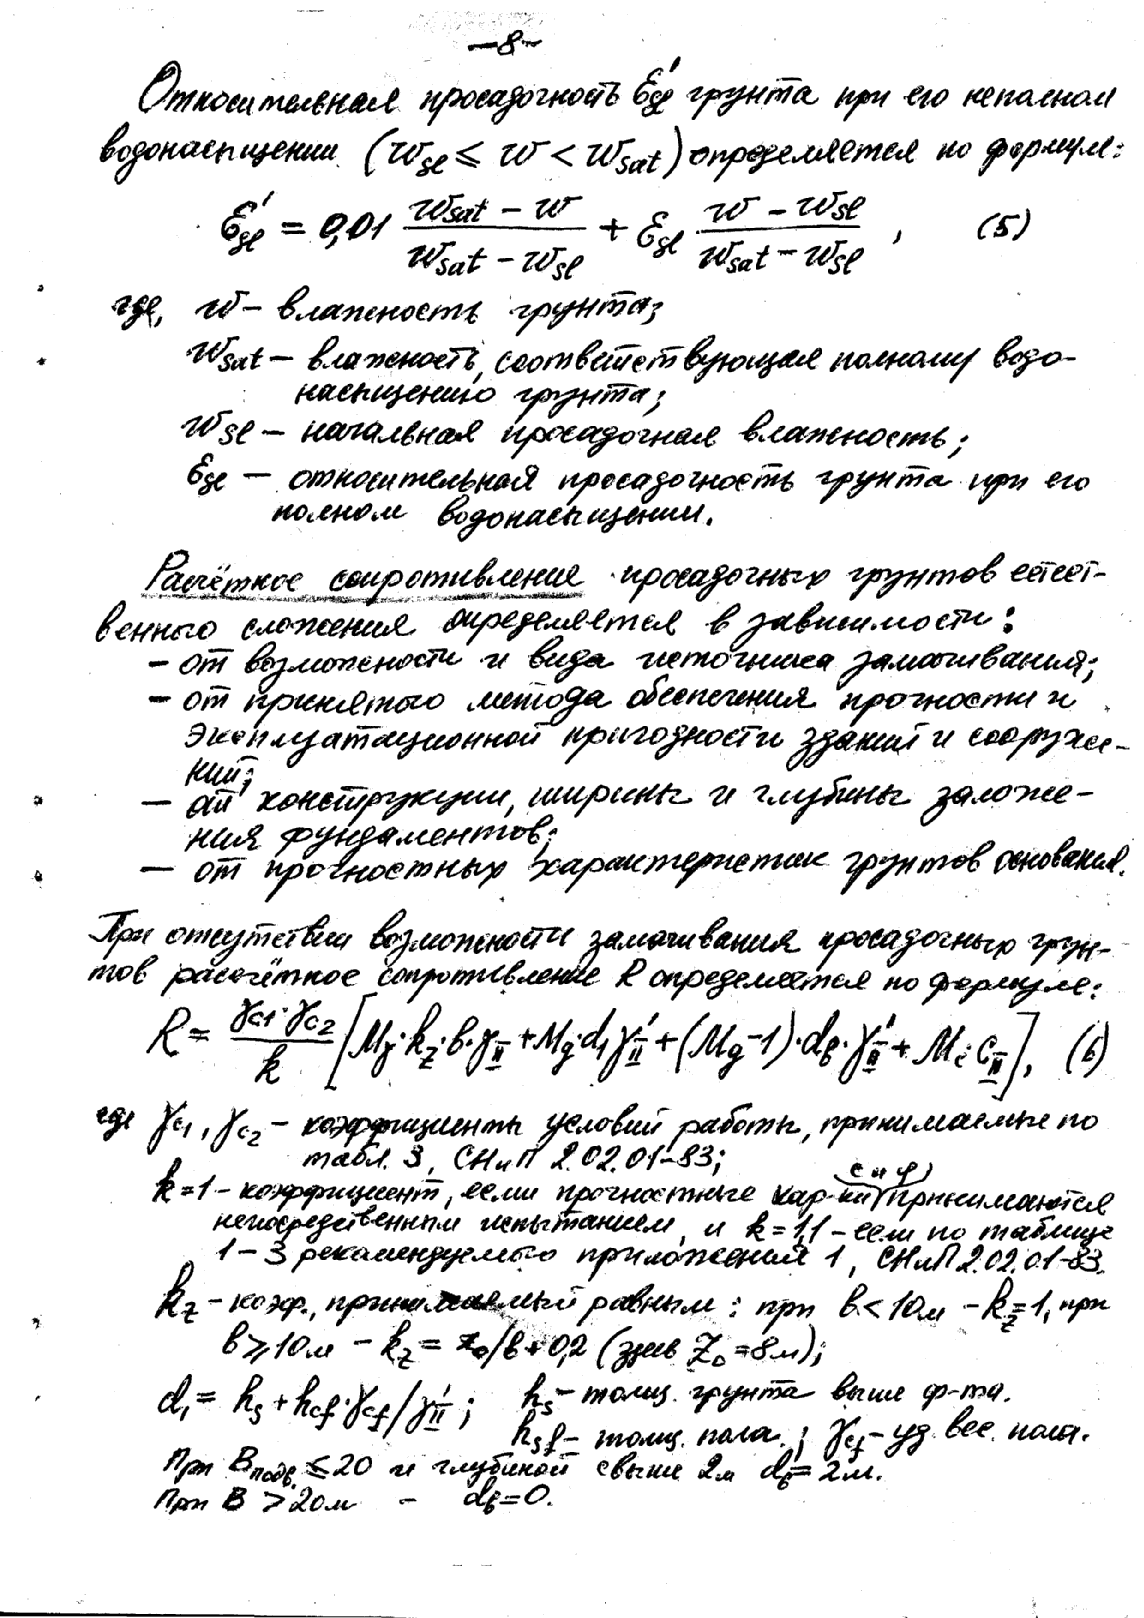 –8–
Относительная просадочность ε'sl грунта при его неполном
водонасыщении (wsl ≤ w < wsat) определяется по формуле:
ε'sl = 0,01 (wsat – w)/(wsat – wsl) + εsl (w – wsl)/(wsat – wsl) , (5)
где, w – влажность грунта;
wsat – влажность, соответствующая полному водо-
насыщению грунта;
wsl – начальная просадочная влажность;
εsl – относительная просадочность грунта при его
полном водонасыщении.
Расчётное сопротивление просадочных грунтов естест-
венного сложения определяется в зависимости:
– от возможности и вида источника замачивания;
– от принятого метода обеспечения прочности и
эксплуатационной пригодности зданий и сооруже-
ний;
– от конструкции, ширины и глубины заложе-
ния фундаментов;
– от прочностных характеристик грунтов основания.
При отсутствии возможности замачивания просадочных грун-
тов расчётное сопротивление R определяется по формуле:
R = (γc1·γc2)/k [Mγ·kz·b·γII + Mg·d1γ'II + (Mg–1)·db·γ'II + Mc·cII], (6)
где γc1, γc2 – коэффициенты условий работы, принимаемые по
табл. 3, СНиП 2.02.01–83;
k=1 – коэффициент, если прочностные хар-ки (с и φ) принимаются
непосредственным испытанием, и k=1,1 – если по таблице
1–3 рекомендуемого приложения 1, СНиП 2.02.01–83.
kz – коэф., принимаемый равным: при b<10м – kz=1, при
b≥10м – kz = z0/b+0,2 (здесь Z0=8м);
d1 = hs + hcf·γcf/γ'II; hs – толщ. грунта выше ф-та.
hsf – толщ. пола.; γcf – уд. вес. пола.
При Bподв. ≤20 и глубиной свыше 2м db=2м.
При B >20м – db=0.